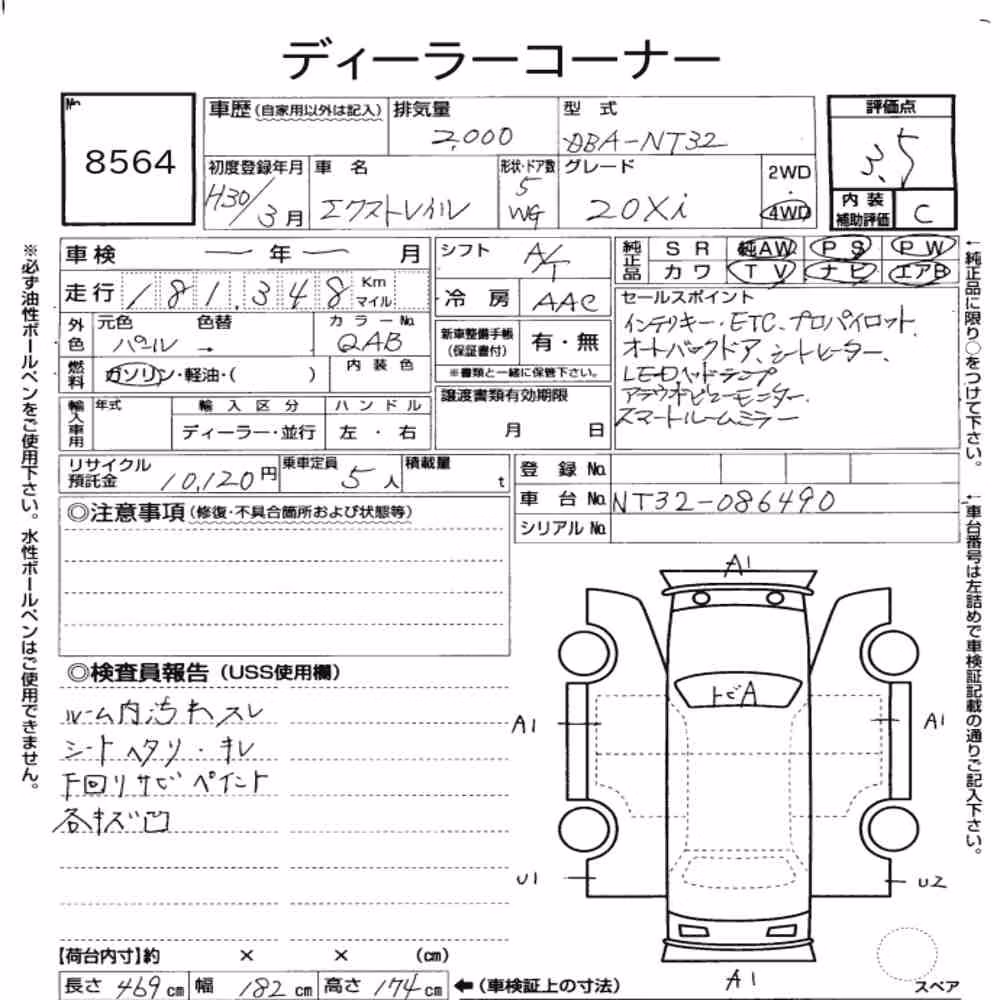 ディーラーコーナー
No. 8564
車歴 (自家用以外は記入)
排気量 2,000
型式 DBA-NT32
評価点 3.5
内装補助評価 C
初度登録年月 H30/3月
車名 エクストレイル
形状・ドア数 5 WG
グレード 20Xi
2WD・4WD
車検 ー年ー月
走行 181,348 Km マイル
外色 元色 パール → 色替
カラーNo. QAB
燃料 ガソリン・軽油・( )
内装色
輸入車用 年式
輸入区分 ディーラー・並行
ハンドル 左・右
シフト A/T
冷房 AAC
新車整備手帳(保証書付) 有・無
※書類と一緒に保管下さい。
譲渡書類有効期限
月 日
純正品 SR 純AW PS PW
カワ TV ナビ エアB
セールスポイント
インテリキー・ETC、プロパイロット、
オートバックドア、シートヒーター、
LEDヘッドランプ
アラウンドビューモニター、
スマートルームミラー
リサイクル預託金 10,120円
乗車定員 5人
積載量 t
登録No.
車台No. NT32-086490
シリアルNo.
◎注意事項(修復・不具合箇所および状態等)
◎検査員報告(USS使用欄)
ルーム内汚れスレ
シートヘタリ・キレ
下回リサビペイント
各キズ凹
A1
トビA
A1
A1
U1
U2
A1
スペア
【荷台内寸】約 × × (cm)
長さ 469cm 幅 182cm 高さ 174cm ←(車検証上の寸法)
※必ず油性ボールペンをご使用下さい。水性ボールペンはご使用できません。
←純正品に限り○をつけて下さい。
←車台番号は左詰めで車検証記載の通りご記入下さい。